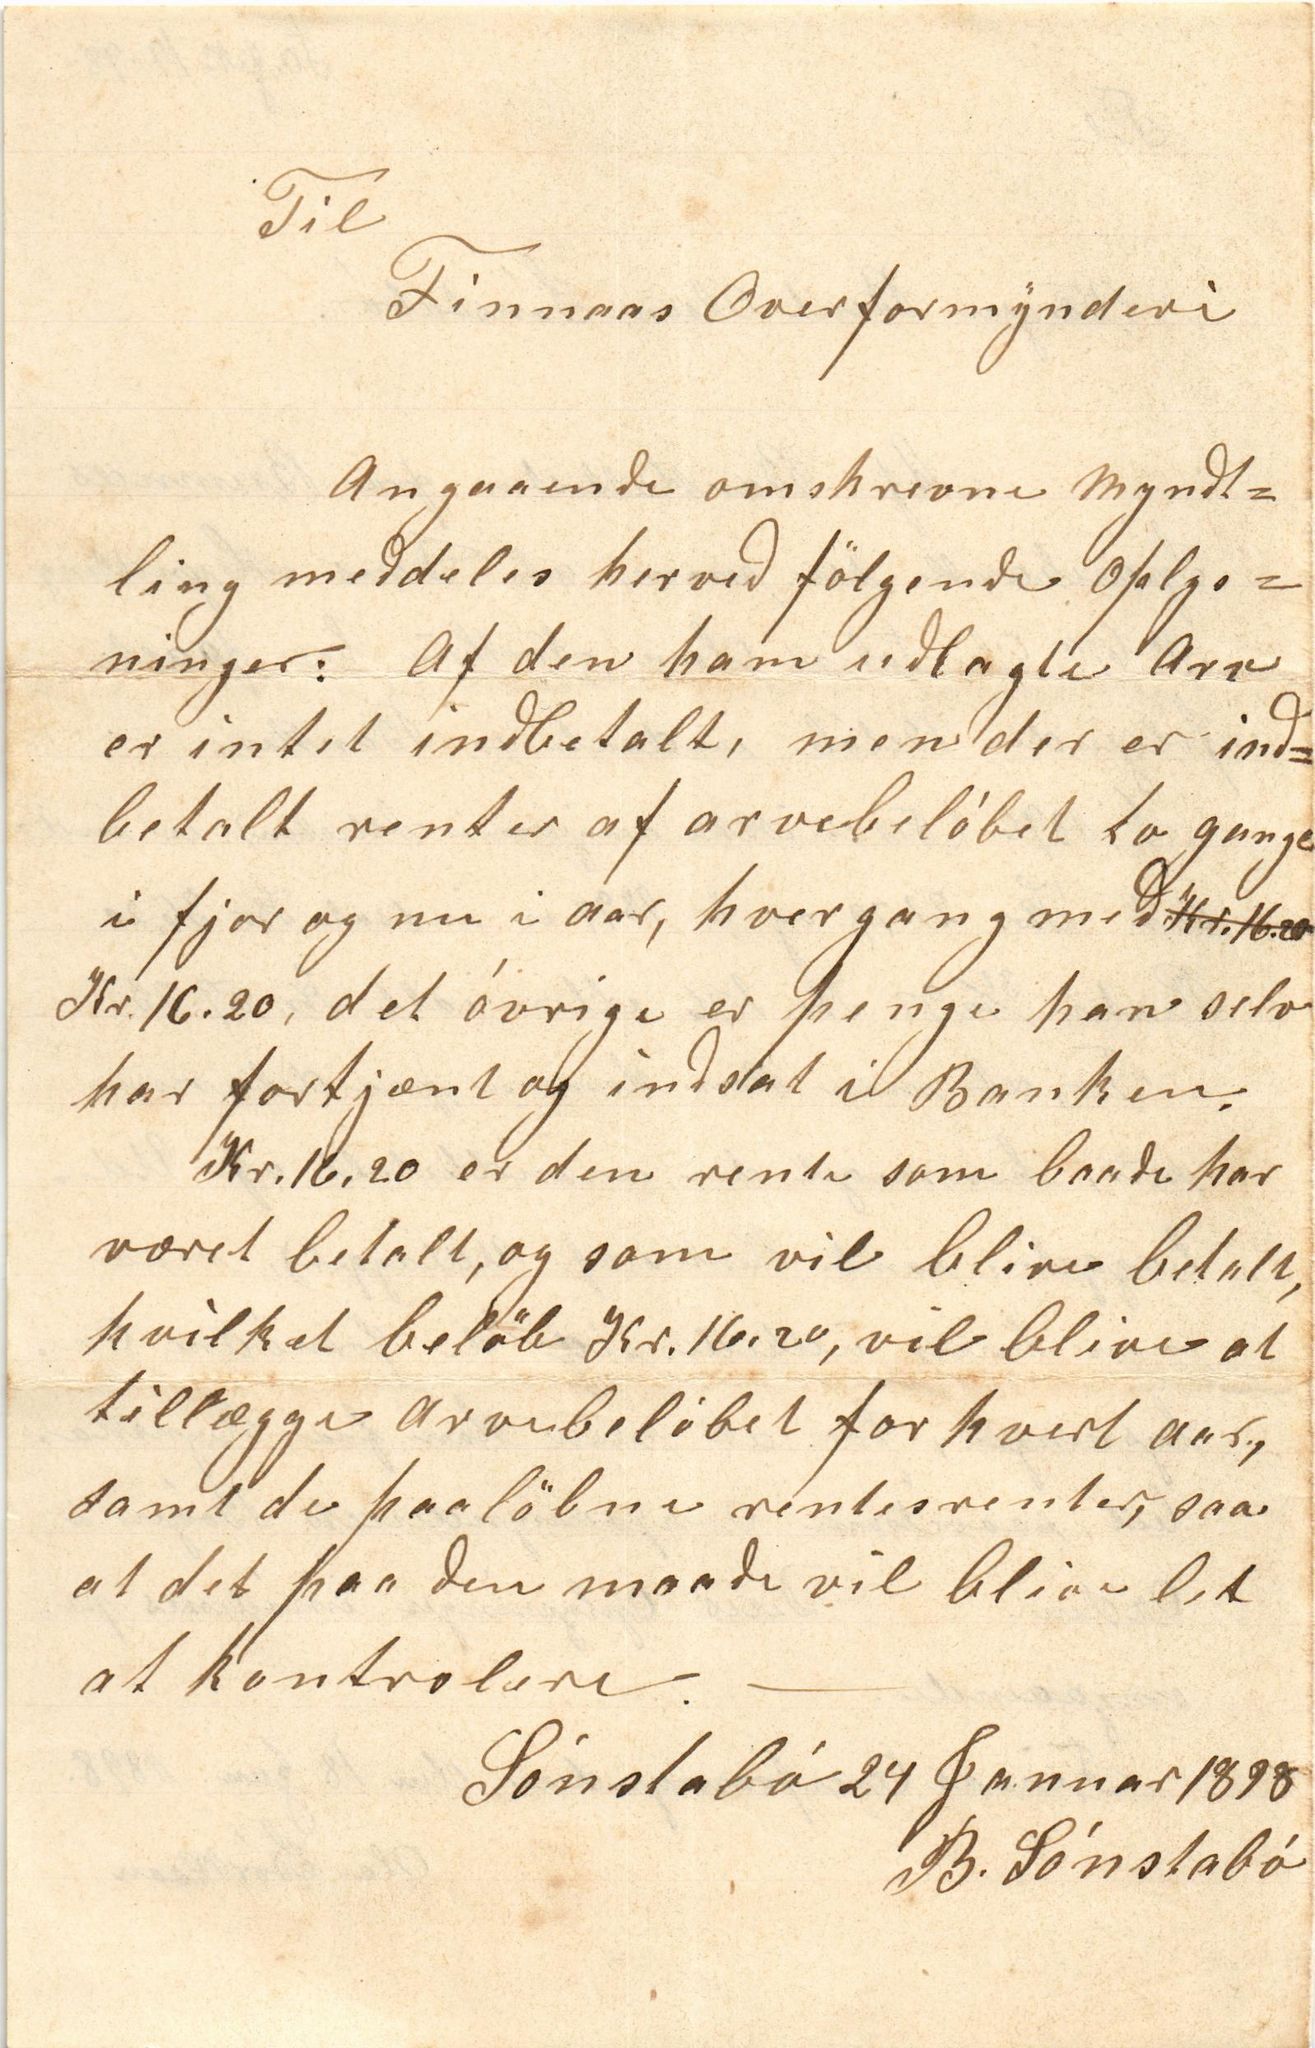 Til
Finnaas Overformÿnderi
Angaaende omskrevne Myndt=
ling meddeles herved fölgende Oplys=
ninger: Af den ham udlagte Arv
er intet indbetalt, men der er ind=
betalt renter af arvebelóbet to gange
i fjor og nu i aar, hvergang med Kr. 16.20
Kr. 16.20, det óvrige er penge han selv
har fortjænt og indsat i Banken.
Kr. 16.20 er den rente som baade har
været betalt, og som vil blive betalt,
hvilket belöb Kr. 16.20, vil blive at
tillægge arvebelóbet for hvert aar,
samt de paalöbne rentesrenter, saa
at det paa den maade vil blive let
at kontrolere. —
Sónstabó 24 Januar 1898
B. Sónstabó